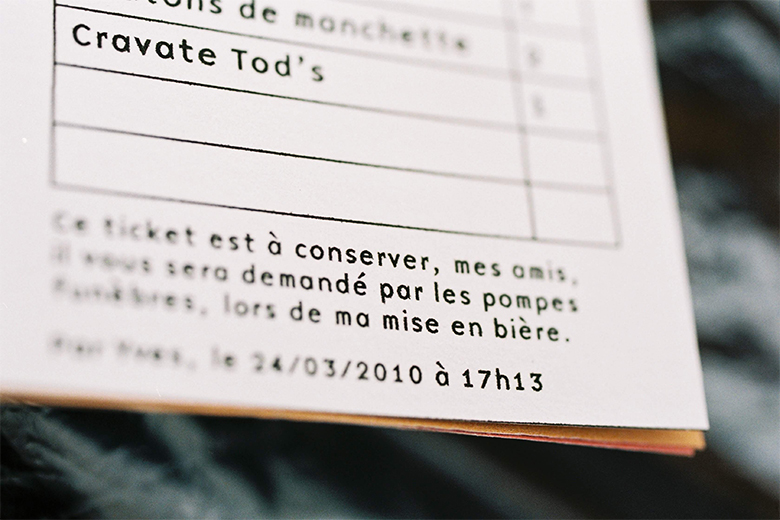 de manchette
Cravate Tod's
Ce ticket est à conserver, mes amis,
il vous sera demandé par les pompes
funèbres, lors de ma mise en bière.
Par Yves, le 24/03/2010 à 17h13